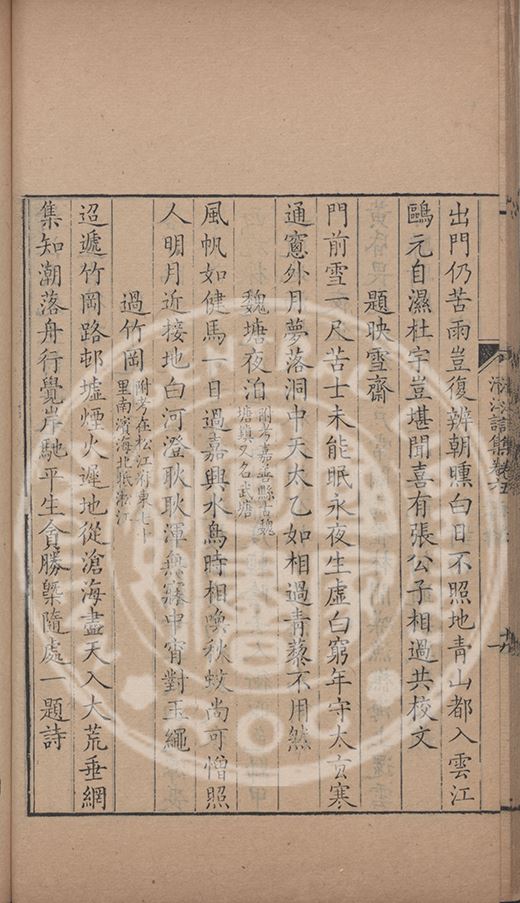 詩集卷
出門仍苦雨豈復辨朝曛白日不照地青山都入雲江
鷗元自濕杜宇豈堪聞喜有張公子相過共校文
題映雪齋
門前雪一尺苦士未能眠永夜生虛白窮年守太玄寒
通窻外月夢落洞中天太乙如相過青藜不用然
魏塘夜泊
附考嘉善縣古魏
塘鎮又名武塘
風帆如健馬一日過嘉興水鳥時相喚秋蚊尚可憎照
人明月近接地白河澄耿耿渾無寐中宵對玉繩
過竹岡
附考在松江府東北十
里南濱海北眡淞江
迢遞竹岡路邨墟煙火遲地從滄海盡天入大荒垂網
集知潮落舟行覺岸馳平生會勝槩隨處一題詩